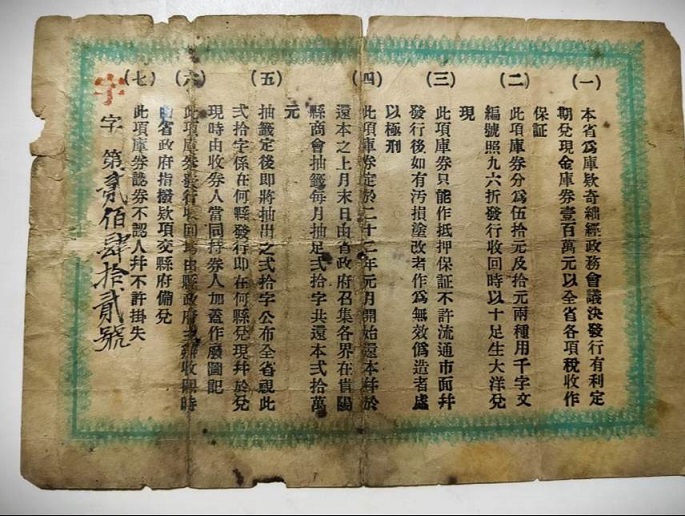 (一)
本省爲庫欵奇絀經政務會議決發行有利定
期兌現金庫券壹百萬元以全省各項稅收作
保証
(二)
此項庫券分爲伍拾元及拾元兩種用千字文
編號照九六折發行收回時以十足生大洋兌
現
(三)
此項庫券只能作抵押保証不許流通市面幷
發行後如有汚損塗改者作爲無效僞造者處
以極刑
(四)
此項庫券定於二十二年元月開始還本幷於
還本之上月末日由省政府召集各界在貴陽
縣商會抽籤每月抽足弍拾字共還本弍拾萬
元
(五)
抽籤定後即將抽出之弍拾字公布全省視此
弍拾字係在何縣發行即在何縣兌現幷於兌
現時由收券人當同持券人加蓋作廢圖記
(六)
此項庫券發行收回均由縣政府 收即時
由省政府指撥欵項交縣府備兌
(七)
此項庫券認券不認人幷不許掛失
字 第貳佰肆拾貳號